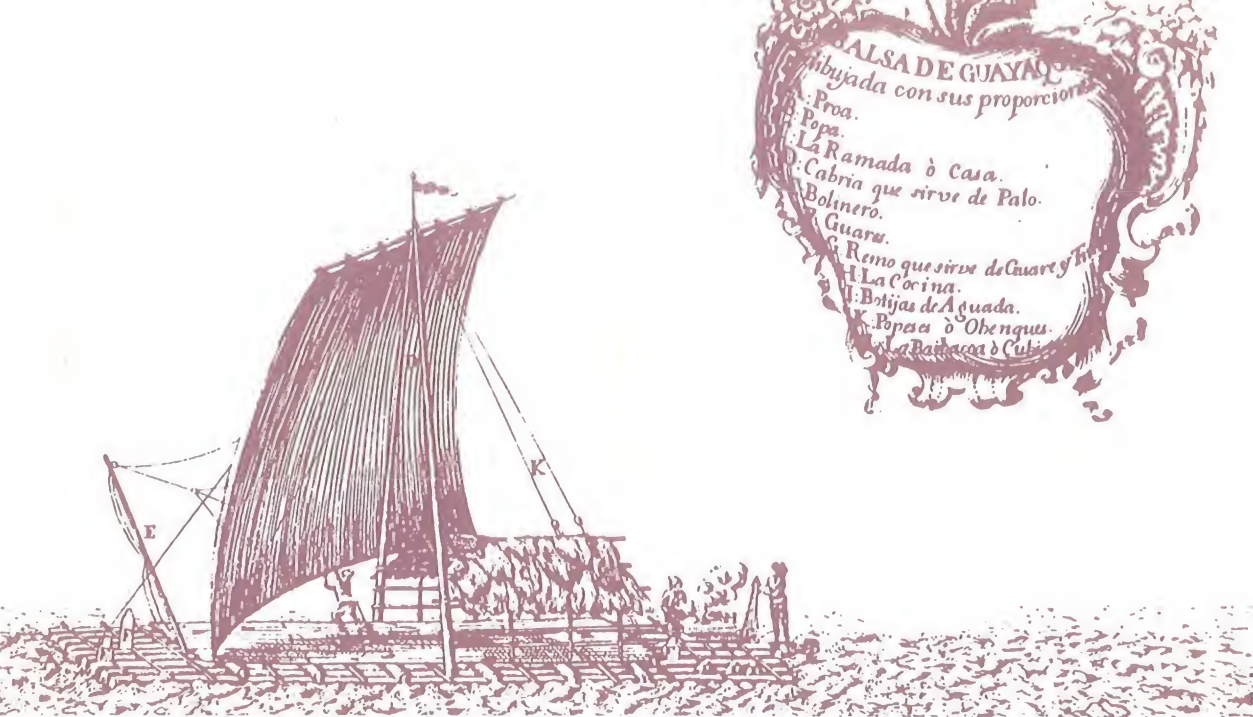 BALSA DE GUAYAQ
dibujada con sus proporciones
Proa.
B. Popa.
La Ramada ò Casa.
D. Cabria que sirve de Palo.
Bolinero.
F. Guares.
G. Remo que sirve de Guare y
H. La Cocina.
I. Botijas de Aguada.
K. Popeses ò Obenques.
La Barbacoa ò
D
K
E